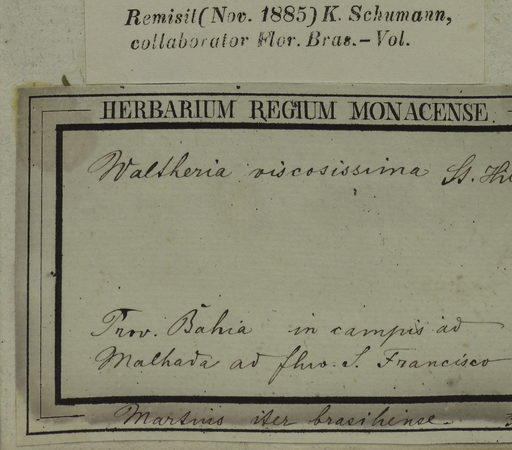 Remisit (Nov. 1885) K. Schumann,
collaborator Flor. Bras. – Vol.
HERBARIUM REGIUM MONACENSE.
Waltheria viscosissima St. Hil
Prov. Bahia in campis ad
Malhada ad fluv. S. Francisco
Martius iter brasiliense.